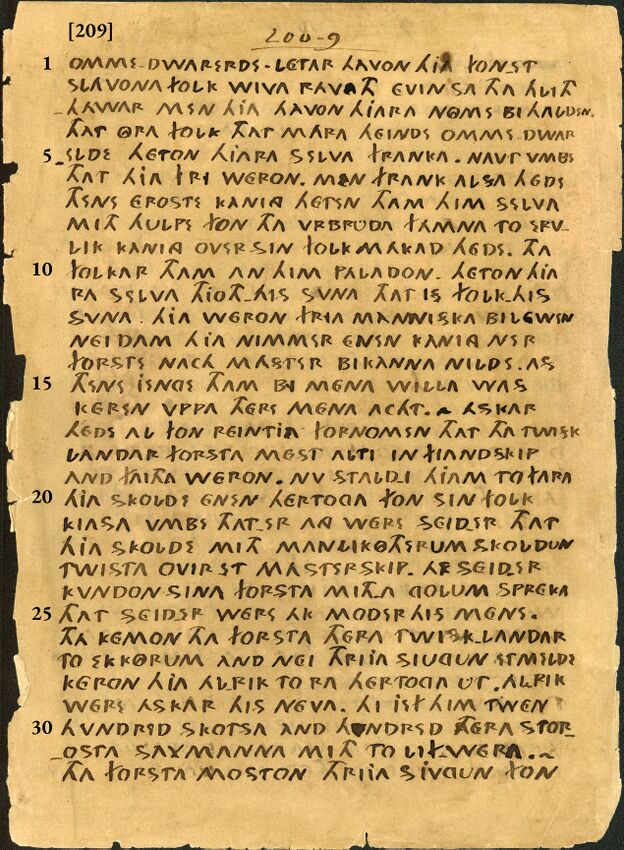 [209]
200-9
1 OMME-DWARERDE-LETAR HAVON HIA FON.ST
SLAVONA FOLK WIVA RAVATH EVIN SA THA HLITH
HAWAR MEN HIA HAVON HIARA NOME BIHALDEN.
THAT ORA FOLK THAT MARA HEINDE OMME-DWAR
5 ELDE HETON HIARA SELVA FRANKA. NAVT VMBE
THAT HIA FRI WERON. MEN FRANK ALSA HEDE
THENE EROSTE KANING HETEN THAM HIM SELVA
MITH HULPE FON THA VRBRUDA FAMNA TO ERV-
LIK KANING OVER SIN FOLK MAKAD HEDE. THA
10 FOLKAR THAM AN HIM PALADON. HETON HIA
RA SELVA THIOTH-HIS SUNA THAT IS FOLK-HIS
SUNA. HIA WERON FRIA MANNISKA BILEWEN
NEIDAM HIA NIMMER ENEN KANING NER
FORSTE NACH MASTER BIKANNA NILDE. AS
15 THENE ISNGE THAM BI MENA WILLA WAS
KEREN VPPA THERE MENA ACHT. ~ ASKAR
HEDE AL FON REINTJA FORNOMEN THAT THA TWISK
LANDAR FORSTA MEST ALTI IN FIANDSKIP
AND FAITHA WERON. NV STALD-I HIAM TO FARA
20 HIA SKOLDE ENEN HERTOGA FON SIN FOLK
KIASA VMBE THAT-ER AG WERE SEIDER THAT
HIA SKOLDE MITH MANLIKOTHERUM SKOLDUN
TWISTA OVIR-ET MASTERSKIP. AK SEIDER
KVNDON SINA FORSTA MITHA GOLUM SPREKA
25 THAT SEIDER WERE AK MODER HIS MENE.
THA KEMON THA FORSTA THERA TWISK-LANDAR
TO EKKORUM AND NEI THRIIA SIUGUN ETMELDE
KERON HIA ALRIK TO RA HERTOGA UT. ALRIK
WERE ASKAR HIS NEVA. HI JEF HIM TWEN
30 HVNDRED SKOTSA AND HVNDRED THERA STOR-
OSTA SAXMANNA MITH TO LIFWERA. ~
THA FORSTA MOSTON THRIIA SIVGUN FON